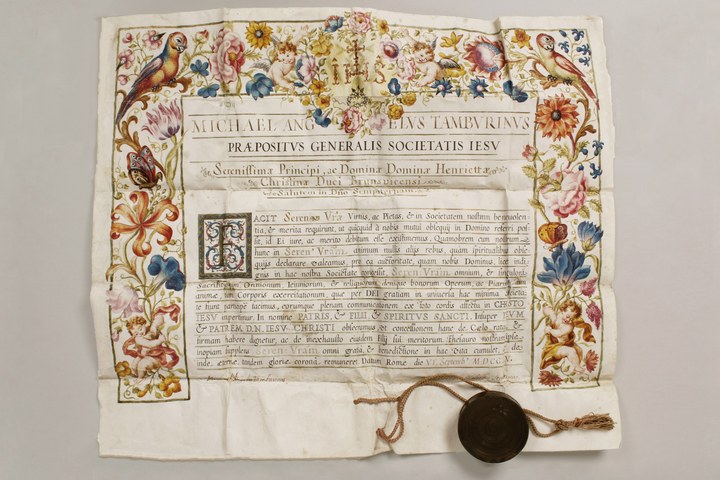 IHS
MICHAEL ANGELUS TAMBVRINVS
PRÆPOSITVS GENERALIS SOCIETATIS IESV
Serenissimæ Principi, ac Dominæ Dominæ Henriettæ
Christinæ Duci Brunsvicensi
Salutem in Dño Sempiternam
EXAGIT Serenæ Vræ Virtus, ac Pietas, & in Societatem nostram benevolen-
tia, & merita requirunt, ut quicquid à nobis mutui obsequij in Domino referri pos-
sit, id Ei iure, ac merito debitum esse existimemus. Quamobrem cum nostrum
hunc in Serenᵐ Vram. animum nullis alijs rebus, quàm spiritualibus obse-
quijs declarare valeamus, pro ea auctoritate, quam nobis Dominus, licèt indi-
gnis in hac nostra Societate concessit, Seren Vram. omnium, & singulorum
Sacrificiorum, Orationum, Ieiuniorum, & reliquorum denique bonorum Operum, ac Piarum tum
animæ, tum Corporis exercitationum, quæ per DEI gratiam in universa hac minima Societa-
te fiunt participem facimus, eorumque plenam communicationem ex toto cordis affectu in CHRÏTO
IESV impertimur. In nomine PATRIS, & FILII, & SPIRITVS SANCTI. Insuper DEVM,
& PATREM D.N. IESV CHRISTI obsecramus, ut concessionem hanc de Cælo ratam, &
firmam habere dignetur, ac de inexhausto eiusdem Filij sui meritorum thesauro nostram ipse
inopiam supplens Seren Vram. omni gratia, & benedictione in hac vita cumulet, & de-
inde æterna tandem gloriæ corona remuneret. Datum Romæ die VI. Septemb. MDCCX.